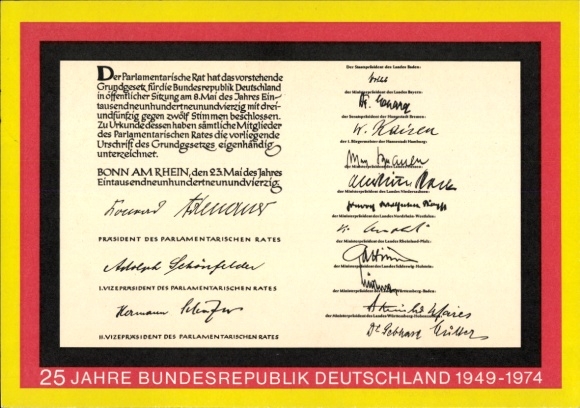 Der Parlamentarische Rat hat das vorstehende
Grundgesetz für die Bundesrepublik Deutschland
in öffentlicher Sitzung am 8. Mai des Jahres Ein-
tausendneunhundertneunundvierzig mit drei-
undfünfzig gegen zwölf Stimmen beschlossen.
Zu Urkunde dessen haben sämtliche Mitglieder
des Parlamentarischen Rates die vorliegende
Urschrift des Grundgesetzes eigenhändig
unterzeichnet.
BONN AM RHEIN, den 23. Mai des Jahres
Eintausendneunhundertneunundvierzig.
Konrad Adenauer
PRÄSIDENT DES PARLAMENTARISCHEN RATES
Adolph Schönfelder
I. VIZEPRÄSIDENT DES PARLAMENTARISCHEN RATES
Hermann Schäfer
II. VIZEPRÄSIDENT DES PARLAMENTARISCHEN RATES
Der Staatspräsident des Landes Baden:
der Ministerpräsident des Landes Bayern:
Dr. Ehard
der Senatspräsident der Hansestadt Bremen:
W. Kaisen
der 1. Bürgermeister der Hansestadt Hamburg:
Max Brauer
der Ministerpräsident des Landes Niedersachsen:
der Ministerpräsident des Landes Nordrhein-Westfalen:
K. Arnold
der Ministerpräsident des Landes Rheinland-Pfalz:
Altmeier
der Ministerpräsident des Landes Schleswig-Holstein:
der Ministerpräsident des Landes Württemberg-Baden:
Reinhold Maier
der Ministerpräsident des Landes Württemberg-Hohenzollern:
Dr Gebhard Müller
25 JAHRE BUNDESREPUBLIK DEUTSCHLAND 1949-1974